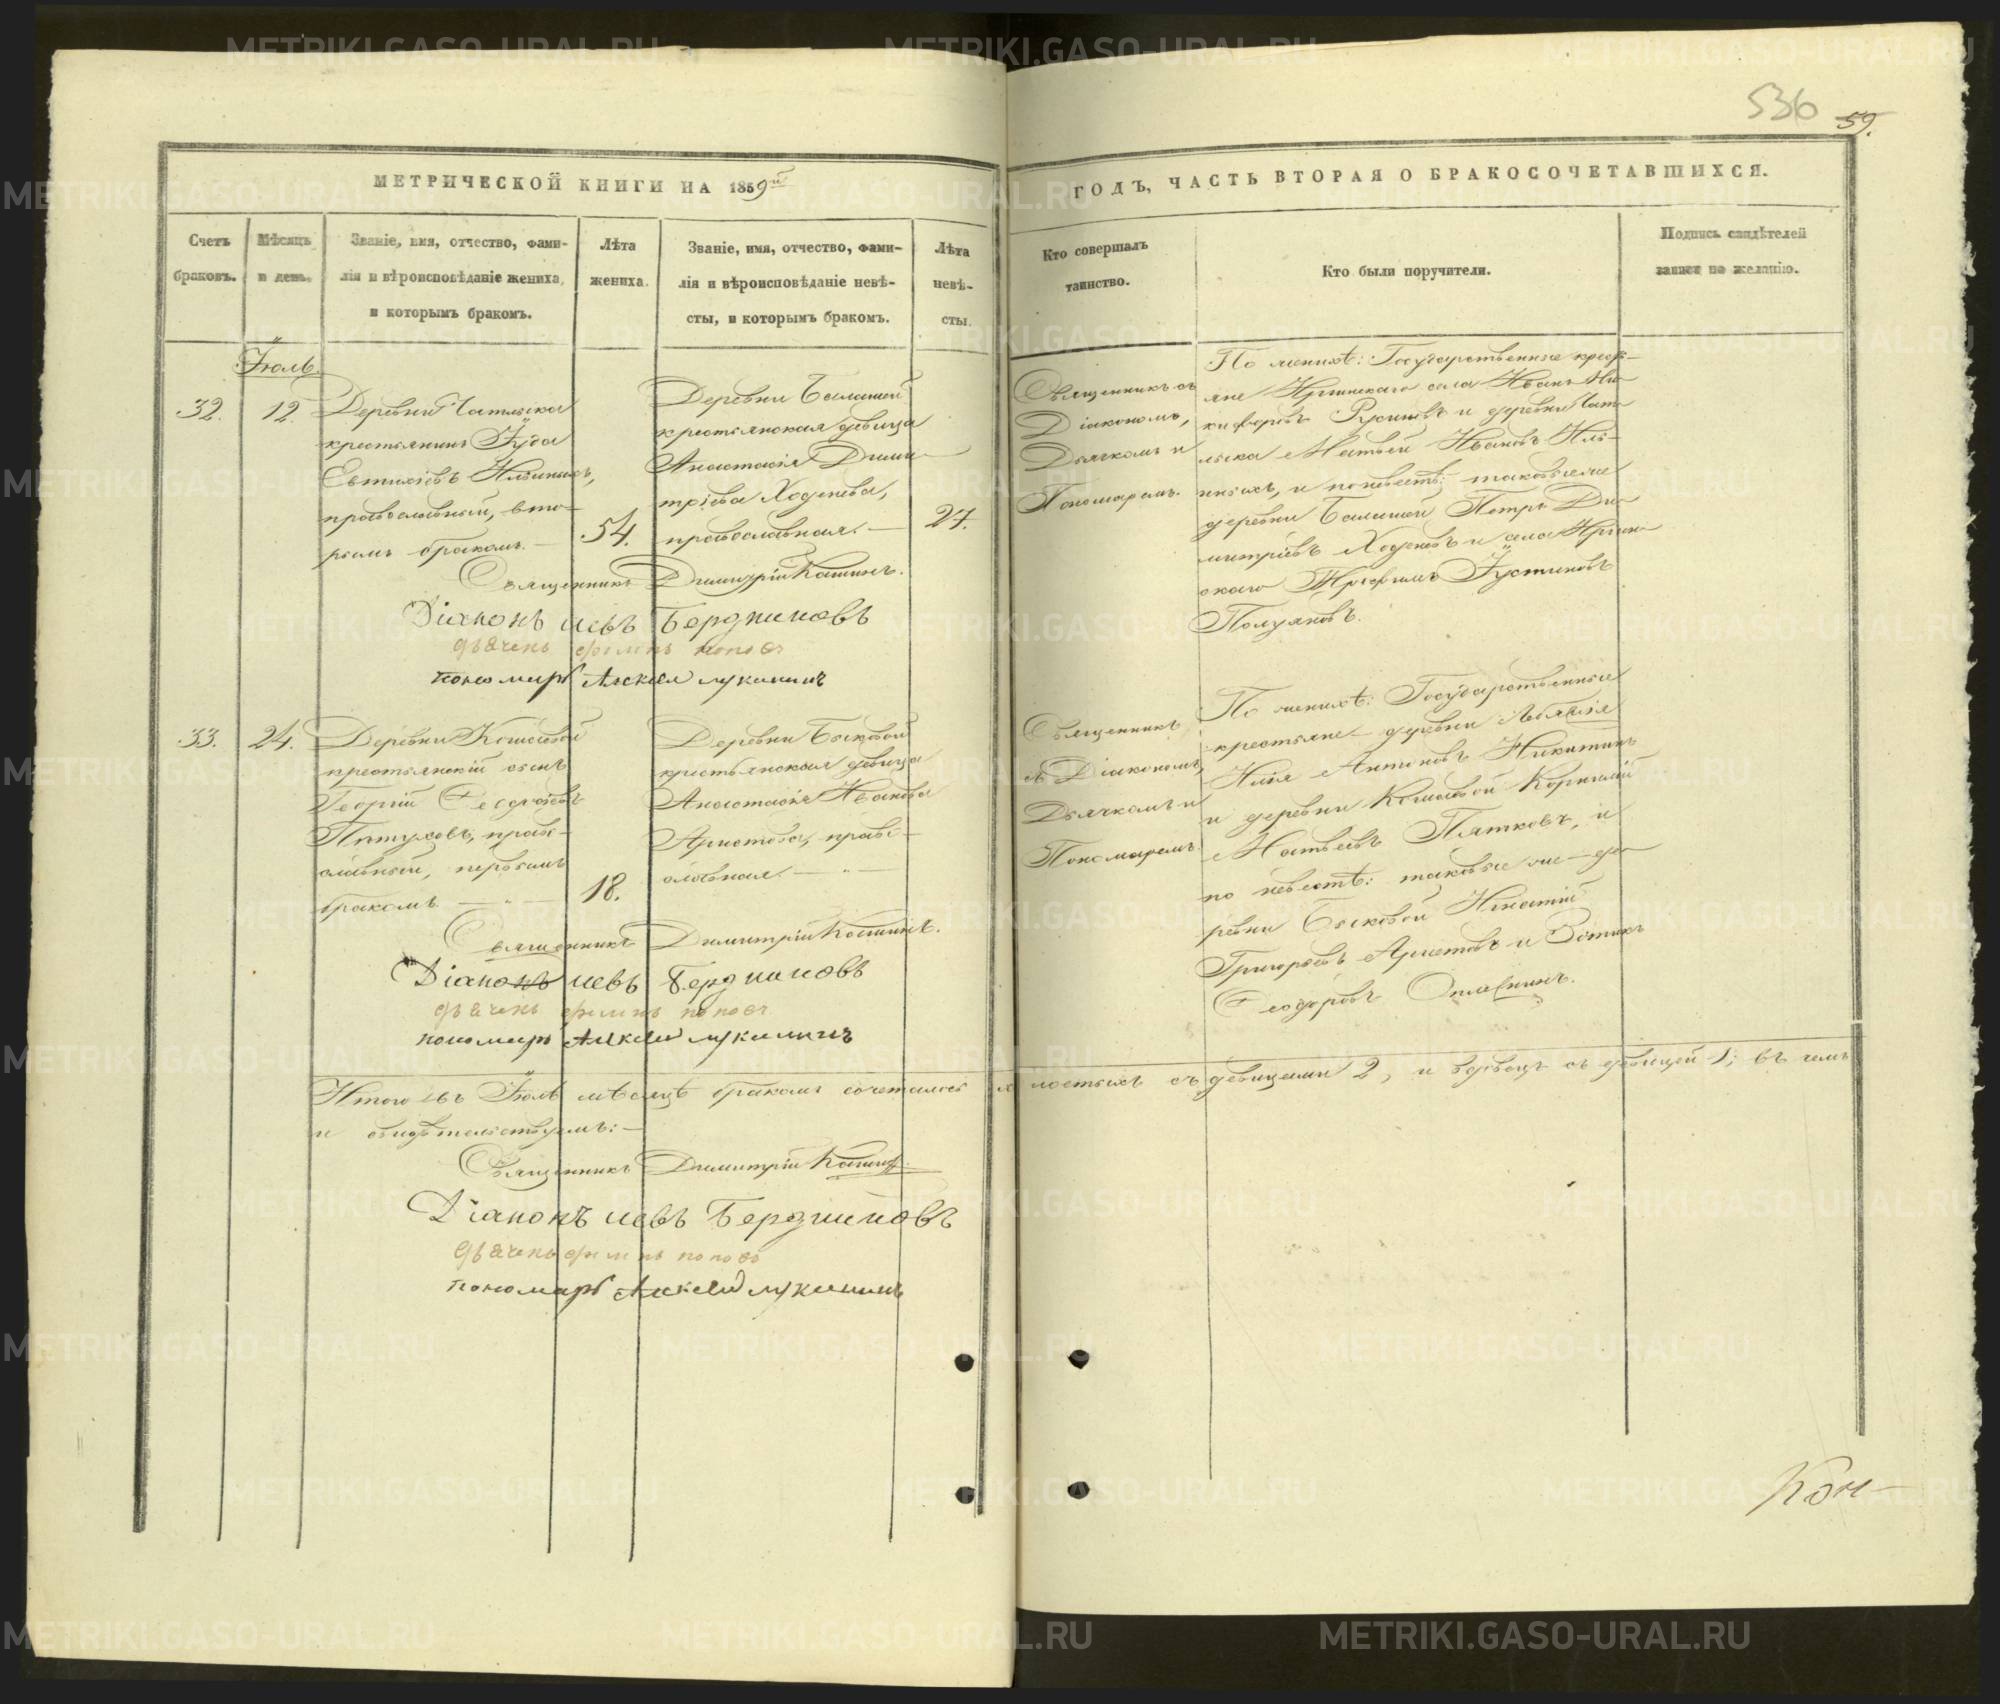 536
59.
МЕТРИЧЕСКОЙ КНИГИ НА 1859й
ГОДЪ, ЧАСТЬ ВТОРАЯ О БРАКОСОЧЕТАВШИХСЯ.
Счетъ
браковъ.
Мѣсяцъ
и день.
Званіе, имя, отчество, фами-
лія и вѣроисповѣданіе жениха,
и которымъ бракомъ.
Лѣта
жениха.
Званіе, имя, отчество, фами-
лія и вѣроисповѣданіе невѣ-
сты, и которымъ бракомъ.
Лѣта
невѣ-
сты.
Кто совершалъ
таинство.
Кто были поручители.
Подпись свидѣтелей
записи по желанію.
Іюль.
32.
12.
Деревни
крестьянинъ Іуда
Евтихіевъ Ильиныхъ,
православный, вто-
рымъ бракомъ. —
54.
Деревни Балашей
крестьянская девица
Анастасія Дими-
тріева Ходенева,
православная. —
27.
Священникъ съ
Діакономъ,
Дьячкомъ и
Пономаремъ.
По женихѣ: Государственные кресть-
яне Иргинскаго села Иванъ Ни-
кифоровъ Русиновъ и деревни
Матвей Ивановъ Иль-
иныхъ, и по невѣстѣ: таковые же
деревни Балашей Петръ Ди-
митріевъ Ходеневъ и села Иргин-
скаго Трофимъ Іустиновъ
Полуяновъ.
Священникъ Димитрій Кашинъ.
Діаконъ левъ Бердниковъ
дьячекъ филипъ поповъ
пономарь Алексей лукининъ
33.
24.
Деревни Кошаевой
крестьянскій сынъ
Георгій Георгіевъ
Петуховъ, право-
славный, первымъ
бракомъ —
18.
Деревни Быковой
крестьянская девица
Анастасія Иванова
Аристова, право-
славная. —
Священникъ
съ Діакономъ,
Дьячкомъ и
Пономаремъ.
По женихѣ: Государственные
крестьяне деревни
Илія Антоновъ Никитинъ
и деревни Кошаевой Корнилій
Матвеевъ Пятковъ, и
по невестѣ: таковые же де-
ревни Быковой Игнатій
Григорьевъ Аристовъ и Зотикъ
Феодоровъ
Священникъ Димитрій Кашинъ.
Діаконъ левъ Бердниковъ
дьячекъ филипъ поповъ
пономарь Алексей лукининъ
Итого въ Іюлѣ мѣсяцѣ бракомъ сочеталось холостыхъ съ девицами 2, и вдовецъ съ девицей 1; въ чемъ
и свидѣтельствуемъ: —
Священникъ Димитрій Кашинъ
Діаконъ левъ Бердниковъ
дьячекъ филипъ поповъ
пономарь Алексей лукининъ
Кон-
METRIKI.GASO-URAL.RU